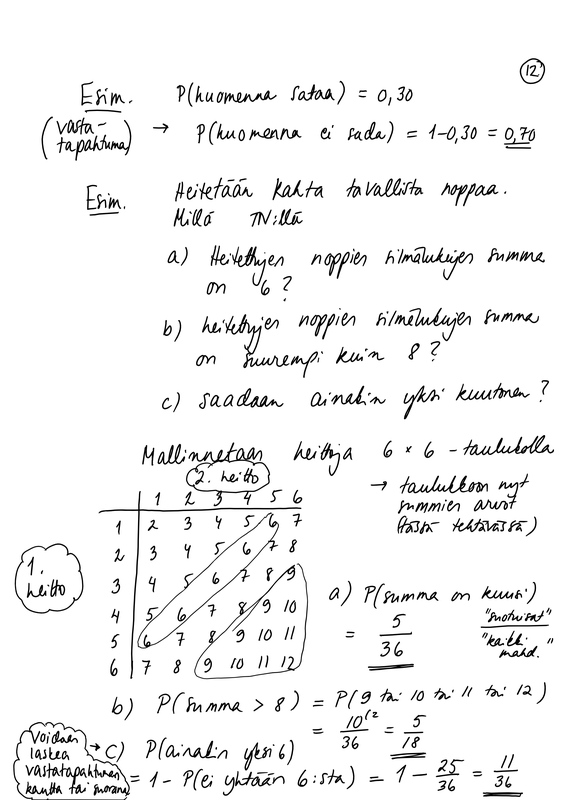 12
Esim. P(huomenna sataa) = 0,30
(vasta-tapahtuma) → P(huomenna ei sada) = 1-0,30 = 0,70
Esim. Heitetään kahta tavallista noppaa.
Millä TN:llä
a) Heitettyjen noppien silmälukujen summa
on 6?
b) heitettyjen noppien silmälukujen summa
on suurempi kuin 8?
c) saadaan ainakin yksi kuutonen?
Mallinnetaan heittoja 6 × 6 - taulukolla
→ taulukkoon nyt
summien arvot
(tässä tehtävässä)
2. heitto
1 2 3 4 5 6
1. heitto
1 2 3 4 5 6 7
2 3 4 5 6 7 8
3 4 5 6 7 8 9
4 5 6 7 8 9 10
5 6 7 8 9 10 11
6 7 8 9 10 11 12
a) P(summa on kuusi)
= 5/36 "suotuisat" / "kaikki mahd."
b) P(summa > 8) = P(9 tai 10 tai 11 tai 12)
= 10/36 (2 = 5/18
voidaan laskea vastatapahtuman kautta tai suoraan
→ c) P(ainakin yksi 6)
= 1 - P(ei yhtään 6:sta) = 1 - 25/36 = 11/36